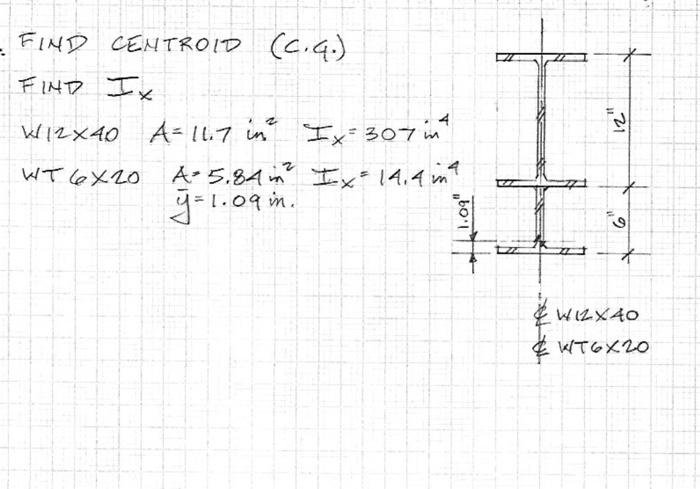 FIND CENTROID (C.G.)
FIND Ix
W12X40 A=11.7 in² Ix=307 in⁴
WT6X20 A=5.84 in² Ix=14.4 in⁴
ȳ=1.09 in.
12"
6"
1.09"
℄ W12X40
℄ WT6X20